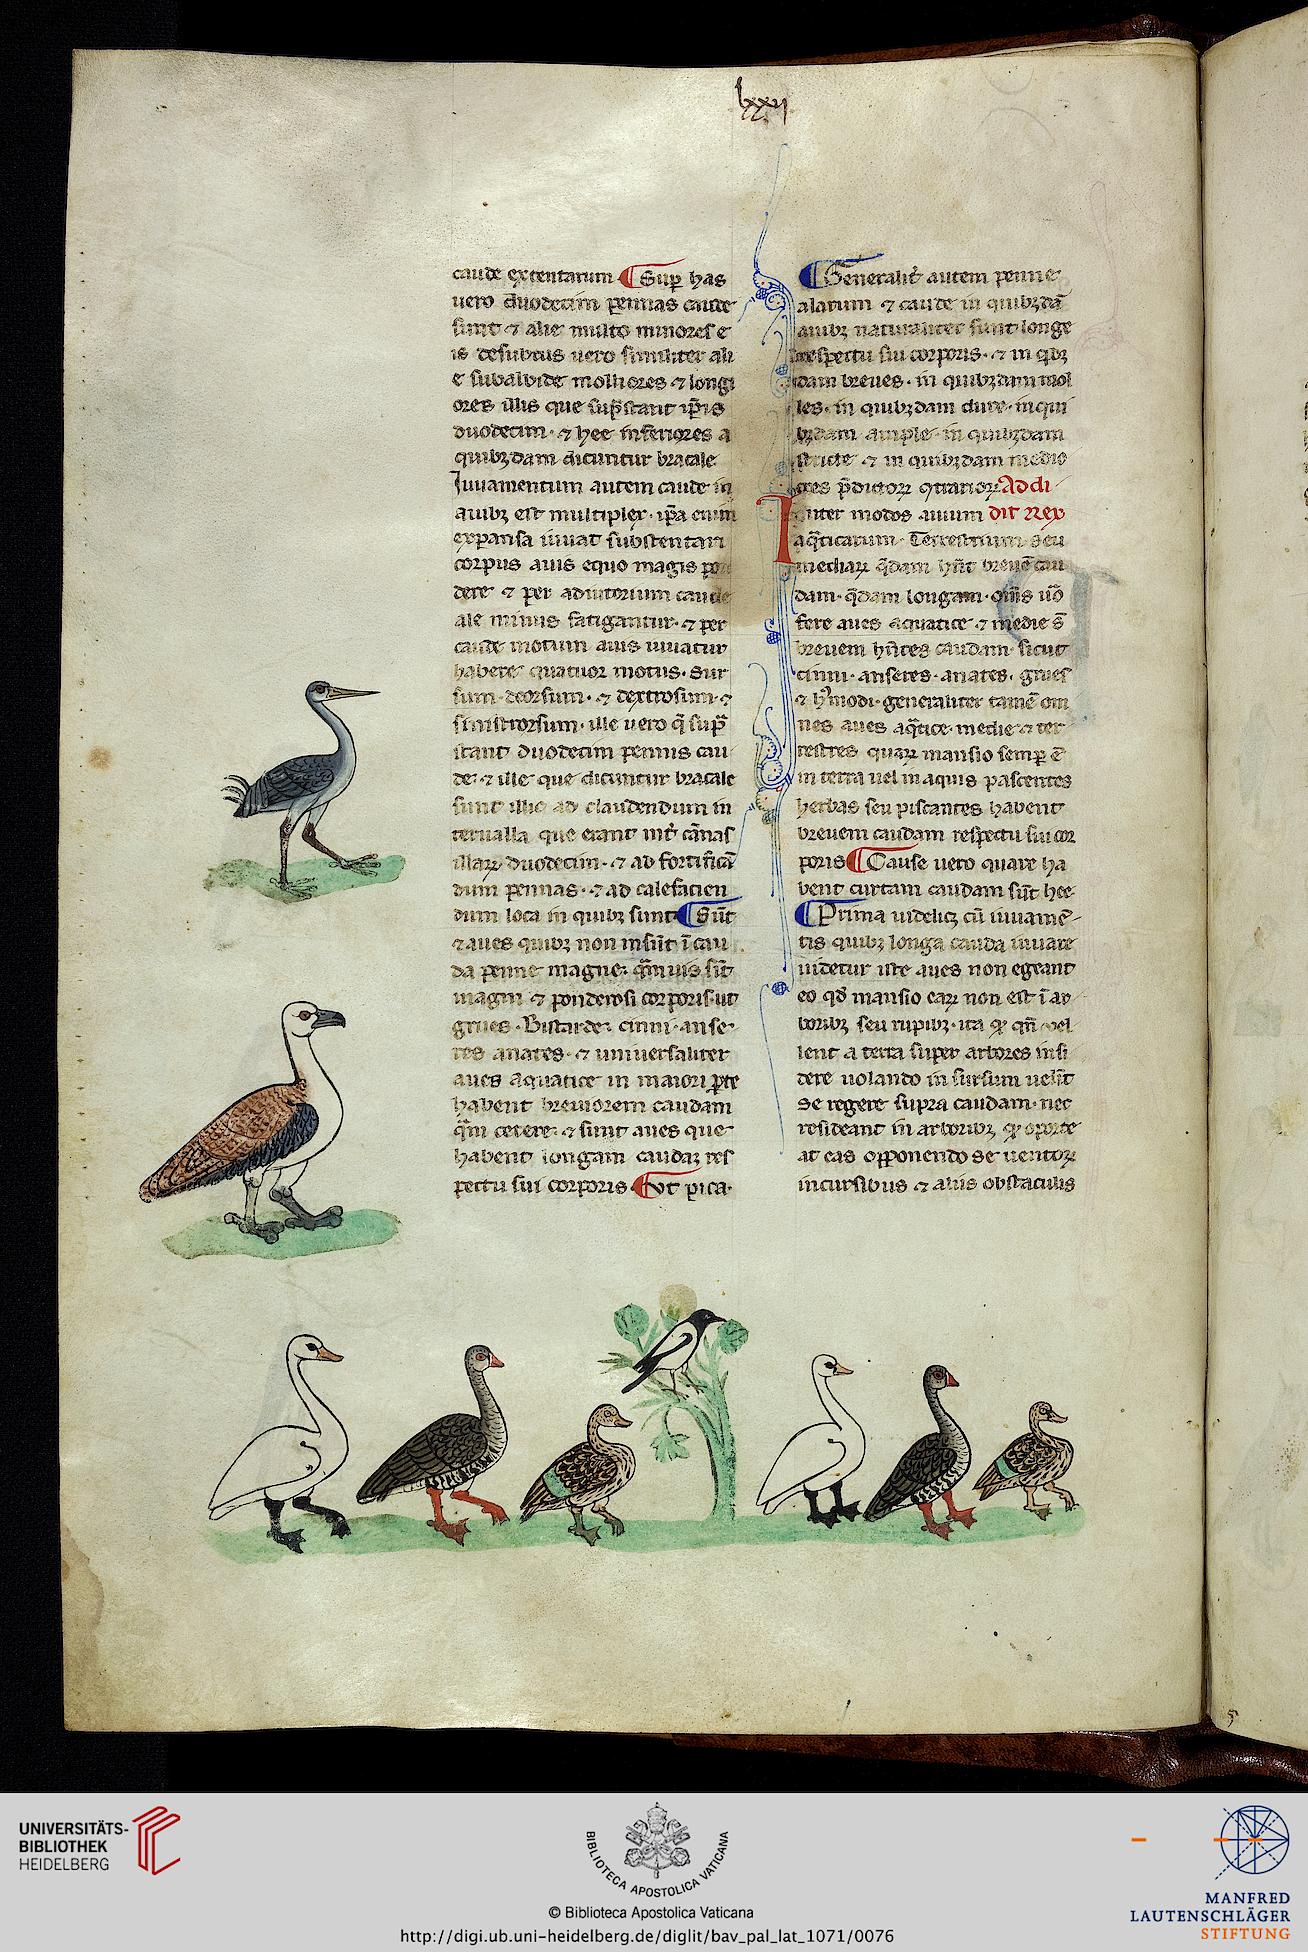 lxxii
caude extentarum ¶ Sup has
vero duodecim pennas caude
sunt ⁊ alie multo minores e
is desubtus uero similiter ali
e subalbide molliores ⁊ longi
ores illis que sup̄stant ip̄is
duodecim · ⁊ hee inferiores a
quibꝫdam dicuntur bracale
Iuuamentum autem caude in
auibꝫ est multiplex · ip̄a enim
expansa iuuat substentari
corpus auis equo magis pon
dere ⁊ per adiutorium caude
ale minus fatigantur · ⁊ per
caude motum auis iuuatur
habere quatuor motus · sur
sum · deorsum · ⁊ dextrosum · ⁊
sinistrorsum · ille uero q̄ sup̄
stant duodecim pennis cau
de · ⁊ ille que dicuntur bracale
sunt illic ad claudendum in
terualla que erant int̄ cānas
illaꝝ duodecim · ⁊ ad fortificā
dum pennas · ⁊ ad calefacien
dum loca in quibꝫ sunt ¶ Sūt
⁊ aues quibꝫ non insūt ī cau
da penne magne · q̄muis sīt
magni ⁊ ponderosi corporis · ut
grues · Bistarde · cinni · anse
res anates · ⁊ uniuersaliter
aues aquatice in maiori ꝑte
habent breuiorem caudam
q̄m cetere · ⁊ sunt aues que
habent longam caudaꝫ res
pectu sui corporis ¶ Vt pica ·
¶ Generalit̄ autem penne
alarum ⁊ caude in quibꝫdā
auibꝫ naturaliter sunt longe
respectu sui corporis · ⁊ in qͥbꝫ
dam breues · in quibꝫdam mol
les · in quibꝫdam dure · in qui
bꝫdam ample · in quibꝫdam
stricte ⁊ in quibꝫdam medio
cres p̄dictoꝝ ꝯtrarioꝝ Addi
Inter modos auium dit Rex
aq̄ticarum · Terrestrium · seu
mediaꝝ q̄dam hn̄t breuē cau
dam · q̄dam longam · oīs uō
fere aues aquatice ⁊ medie s̄
breuem hn̄tes caudam · sicut
cinni · anseres · anates · grues
⁊ hͥmodi · generaliter tamē om
nes aues aq̄tice · medie ⁊ ter
restres quaꝝ mansio semꝑ ē
in terra uel in aquis pascentes
herbas seu piscantes habent
breuem caudam respectu sui cor
poris ¶ Cause uero quare ha
bent curtam caudam sūt hee ·
¶ Prima uidelicꝫ cū iuuamē
tis quibꝫ longa cauda iuuare
uidetur iste aues non egeant
eo qd̄ mansio eaꝝ non est ī ar
boribꝫ seu rupibꝫ · ita ꝙ qn̄ uel
lent a terra super arbores insi
dere uolando in sursum uelīt
se regere supra caudam · nec
resideant in arboribꝫ ꝙ oporte
at eas opponendo se uentoꝝ
incursibus ⁊ aliis obstaculis
UNIVERSITÄTS-
BIBLIOTHEK
HEIDELBERG
BIBLIOTECA APOSTOLICA VATICANA
© Biblioteca Apostolica Vaticana
http://digi.ub.uni-heidelberg.de/diglit/bav_pal_lat_1071/0076
MANFRED
LAUTENSCHLÄGER
STIFTUNG